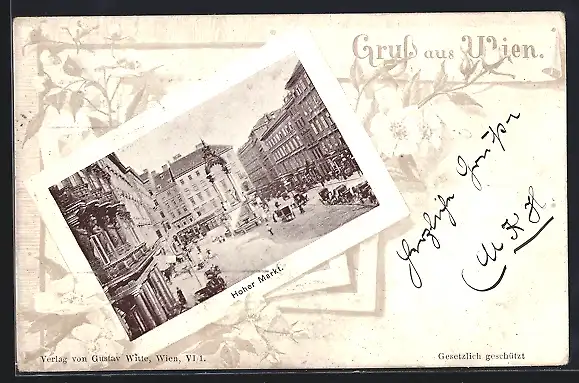 Gruß aus Wien.
Herzliche Grüße
MKH
Hoher Markt.
Verlag von Gustav Witte, Wien, VI/1.
Gesetzlich geschützt